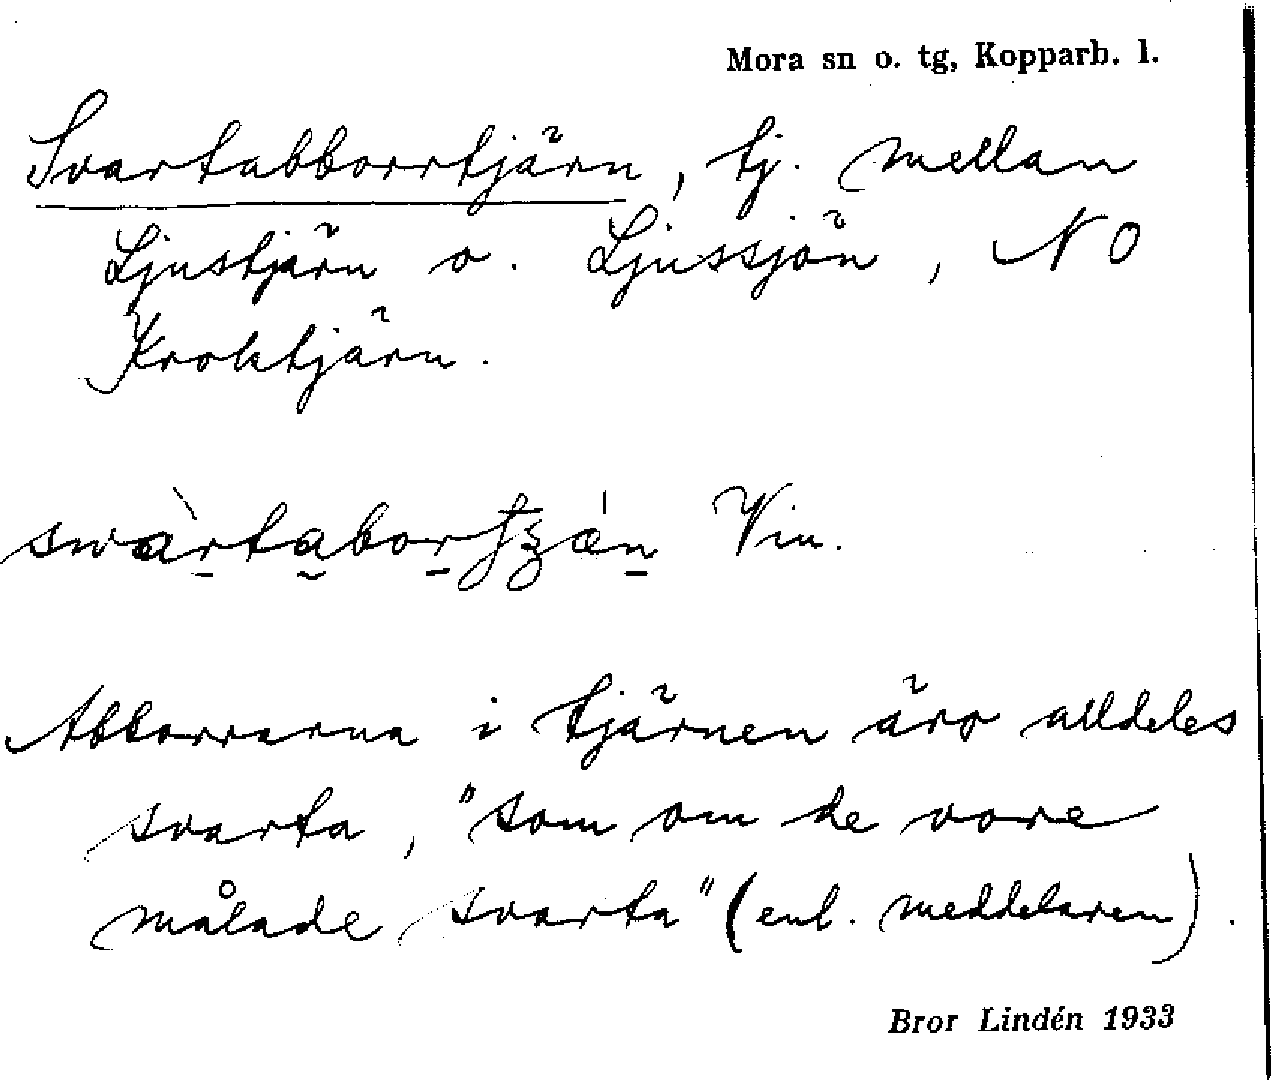 Mora sn o. tg, Kopparb. l.
Svartabborrtjärn, tj. mellan
Ljustjärn o. Ljussjön, NO
Kroktjärn.
Vin.
Abborrarna i tjärnen äro alldeles
svarta, "som om de vore
målade svarta" (enl. meddelaren).
Bror Lindén 1933